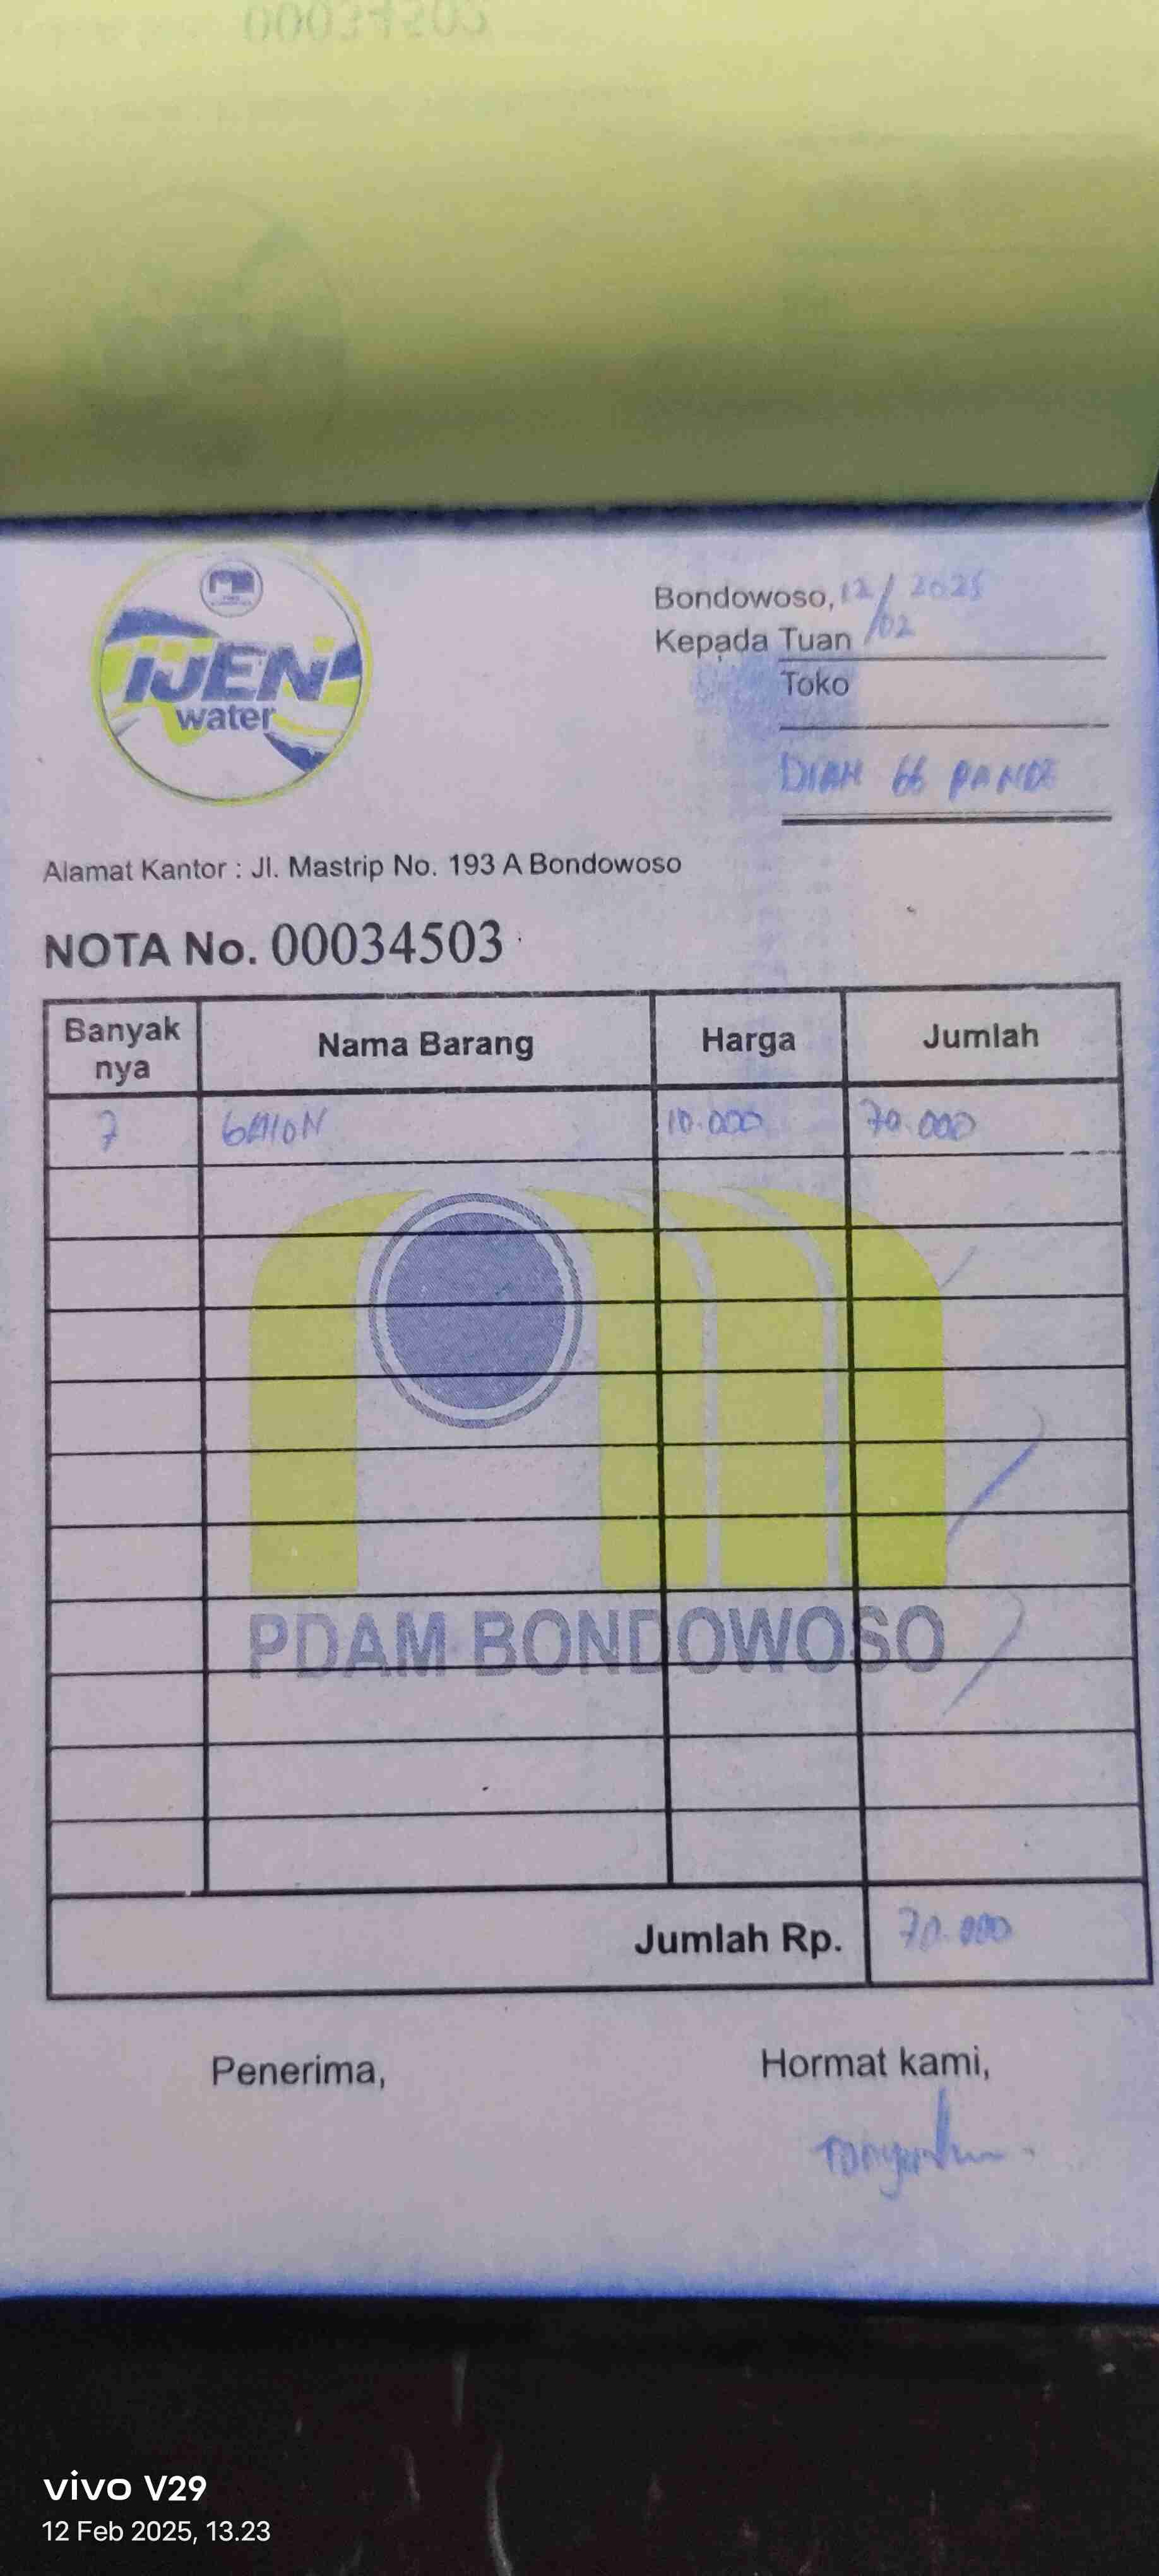 00034503
IJEN
water
Bondowoso, 12/02 2025
Kepada Tuan
Toko
DIAH 66 PANDE
Alamat Kantor : Jl. Mastrip No. 193 A Bondowoso
NOTA No. 00034503
Banyak nya Nama Barang Harga Jumlah
7 GAllON 10.000 70.000
PDAM BONDOWOSO
Jumlah Rp. 70.000
Penerima, Hormat kami,
vivo V29
12 Feb 2025, 13.23